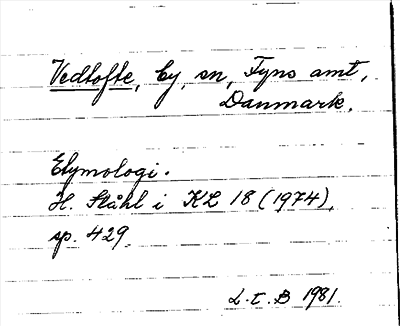 Vedtofte, by, sn, Fyns amt,
Danmark.
Etymologi.
H. Ståhl i KL 18 (1974),
sp. 429.
L. t. B 1981.